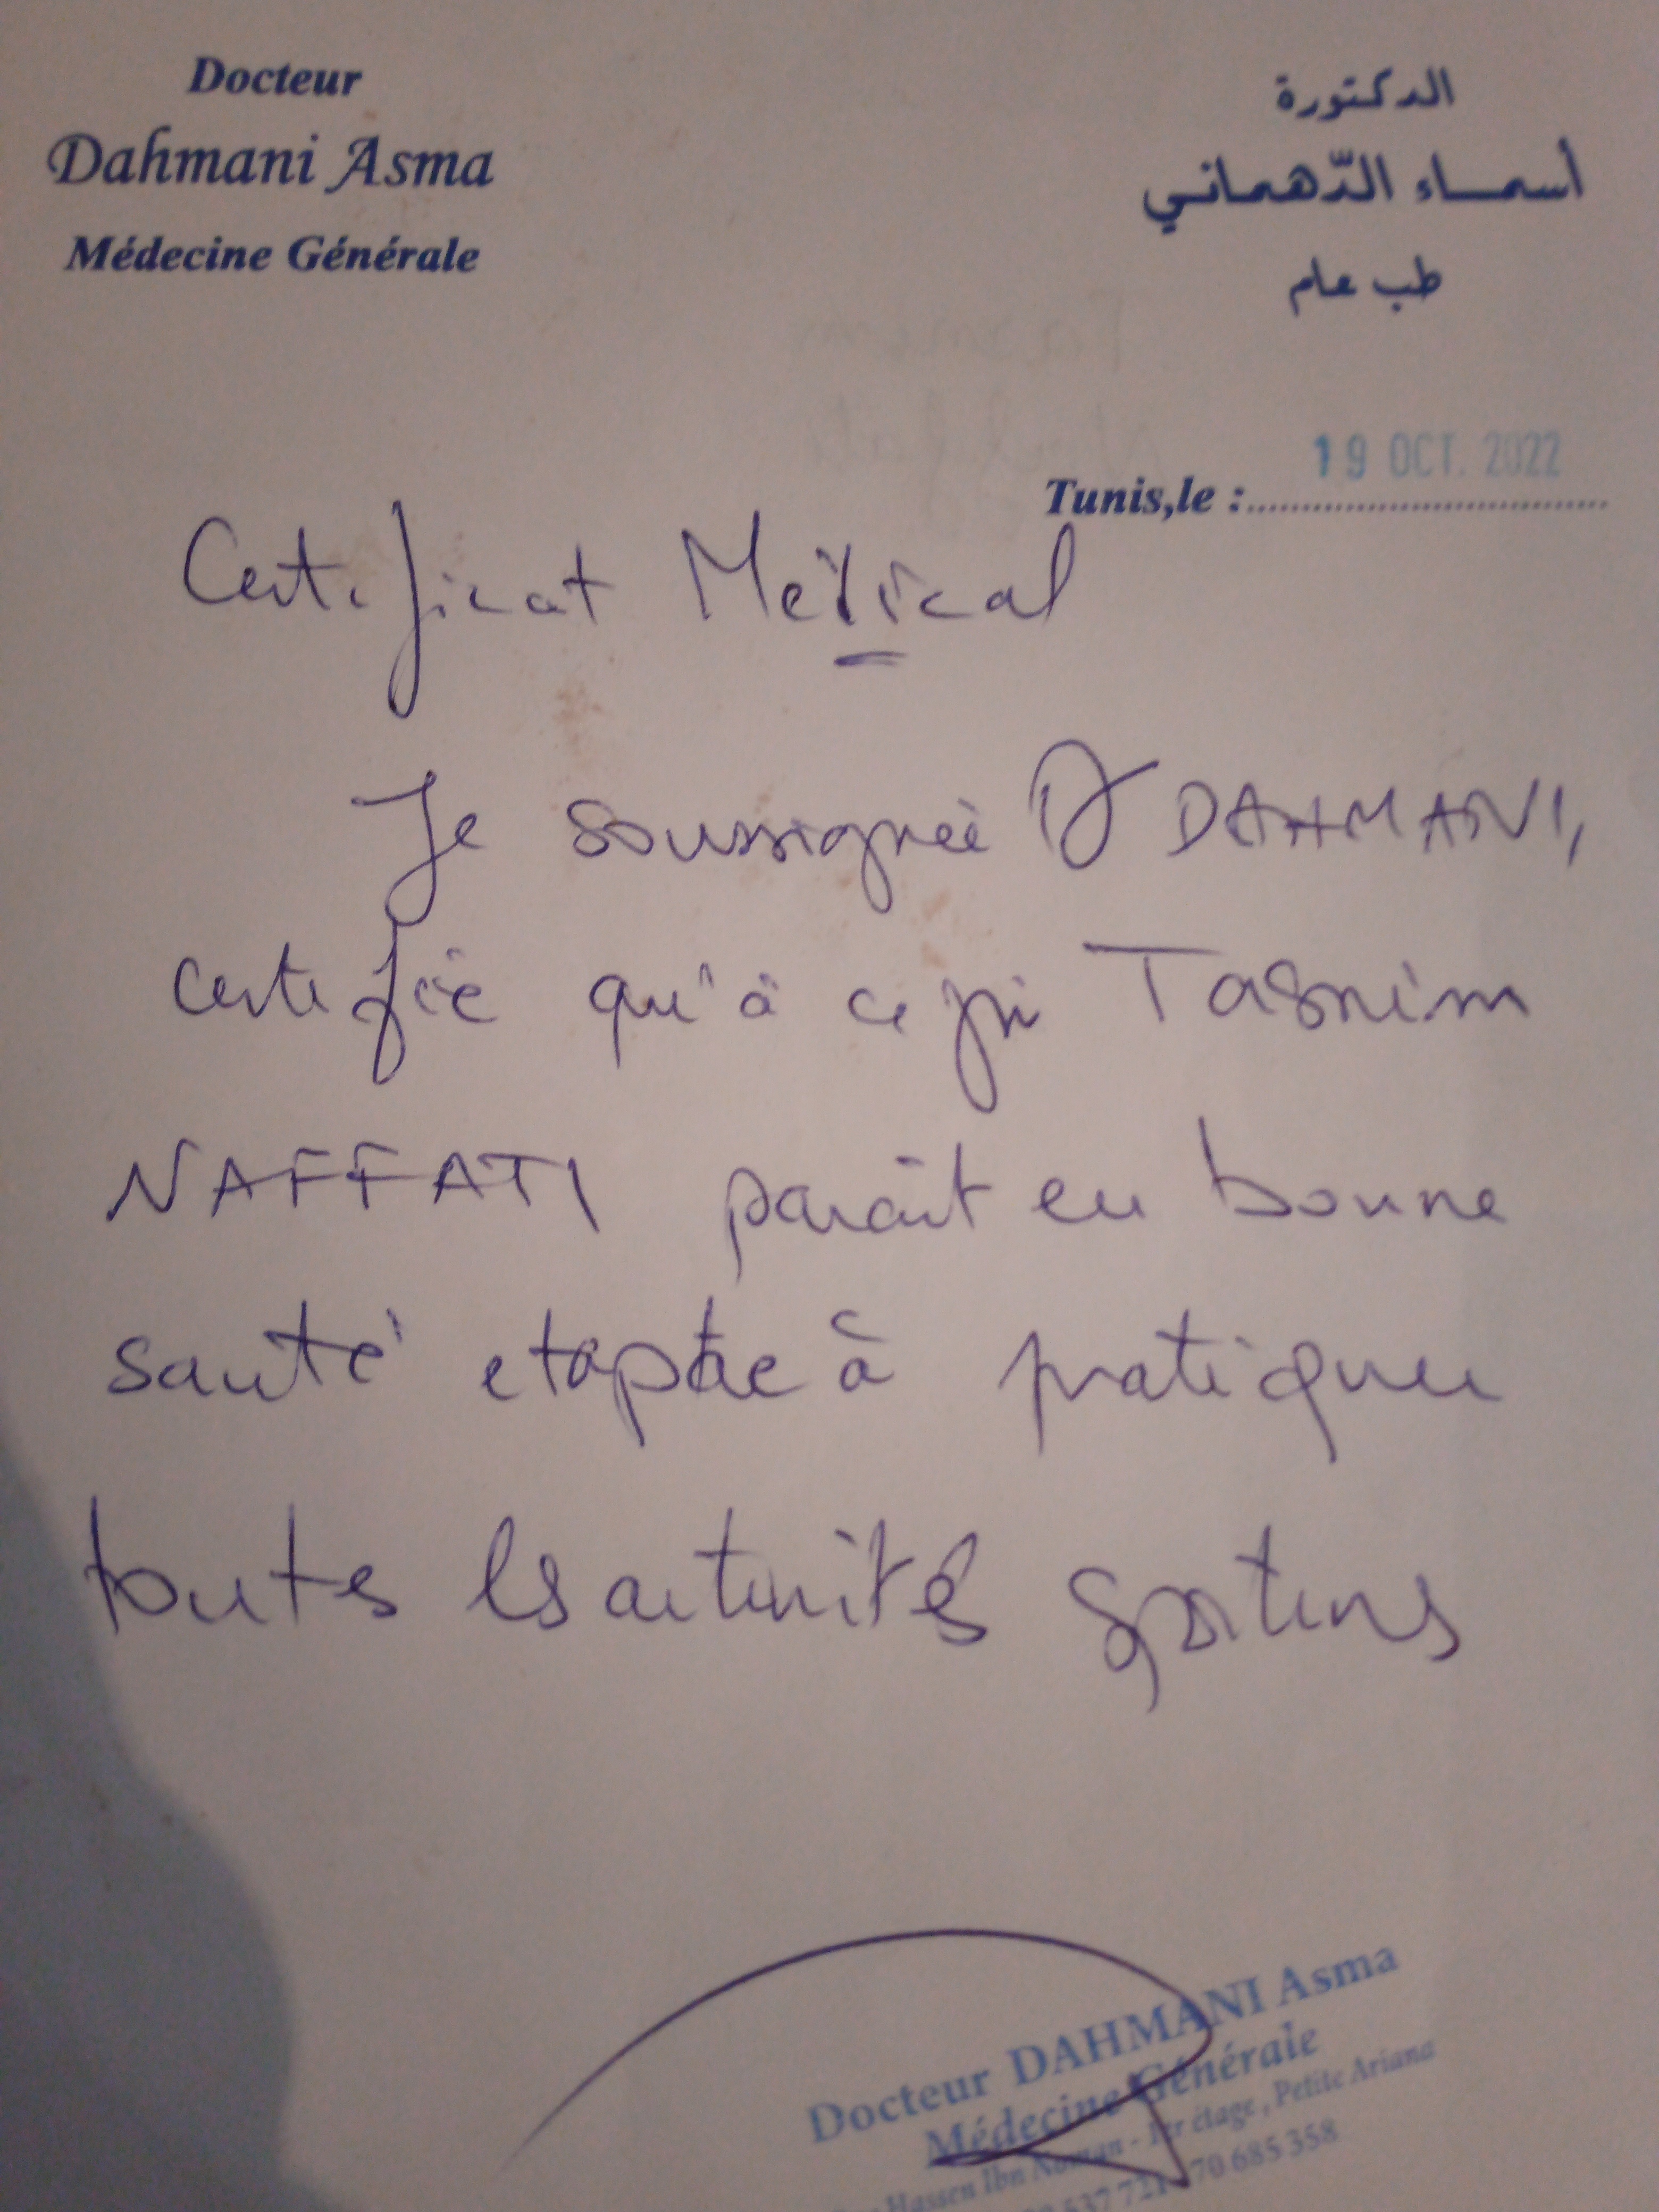 Docteur
Dahmani Asma
Médecine Générale
الدكتورة
أسماء الدّهماني
طب عام
19 OCT. 2022
Tunis,le :
Certificat Médical
Je soussignée Dr DAHMANI,
certifie qu'à ce jour Tasnim
NAFFATI parait en bonne
santé et apte à pratiquer
toutes les activités sportives
Docteur DAHMANI Asma
Médecine Générale
Hassen Ibn Noman - 1er étage , Petite Ariana
537 721 70 685 358